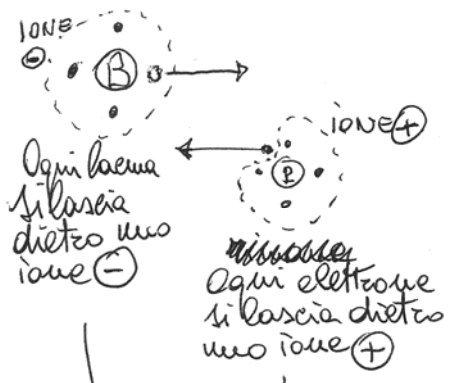 IONE
-
B
IONE +
P
Ogni lacuna
si lascia
dietro uno
ione -
Ogni elettrone
si lascia dietro
uno ione +